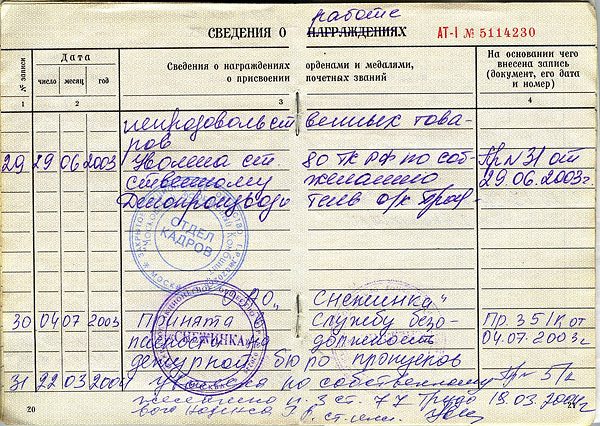 работе
СВЕДЕНИЯ О НАГРАЖДЕНИЯХ АТ-I № 5114230
№ записи
Дата
число месяц год
Сведения о награждениях орденами и медалями,
о присвоении почетных званий
На основании чего
внесена запись
(документ, его дата
и номер)
1 2 3 4
непродовольственных това-
ров
29 29 06 2003 Уволена ст 80 ТК РФ по соб- Пр № 31 от
ственному желанию 29.06.2003г.
Делопроизводитель о/к
ОТДЕЛ
КАДРОВ
АО „Снежинка"
30 04 07 2003 Принята службу безо- Пр. 35/к от
пасности на должность 04.07.2003г
"СНЕЖИНКА"
дежурной бюро пропусков
31 22 03 2004 Уволена по собственному Пр № 5/к
желанию п. 3 ст. 77 Трудо 18.03.2004г
вого Кодекса
20 21